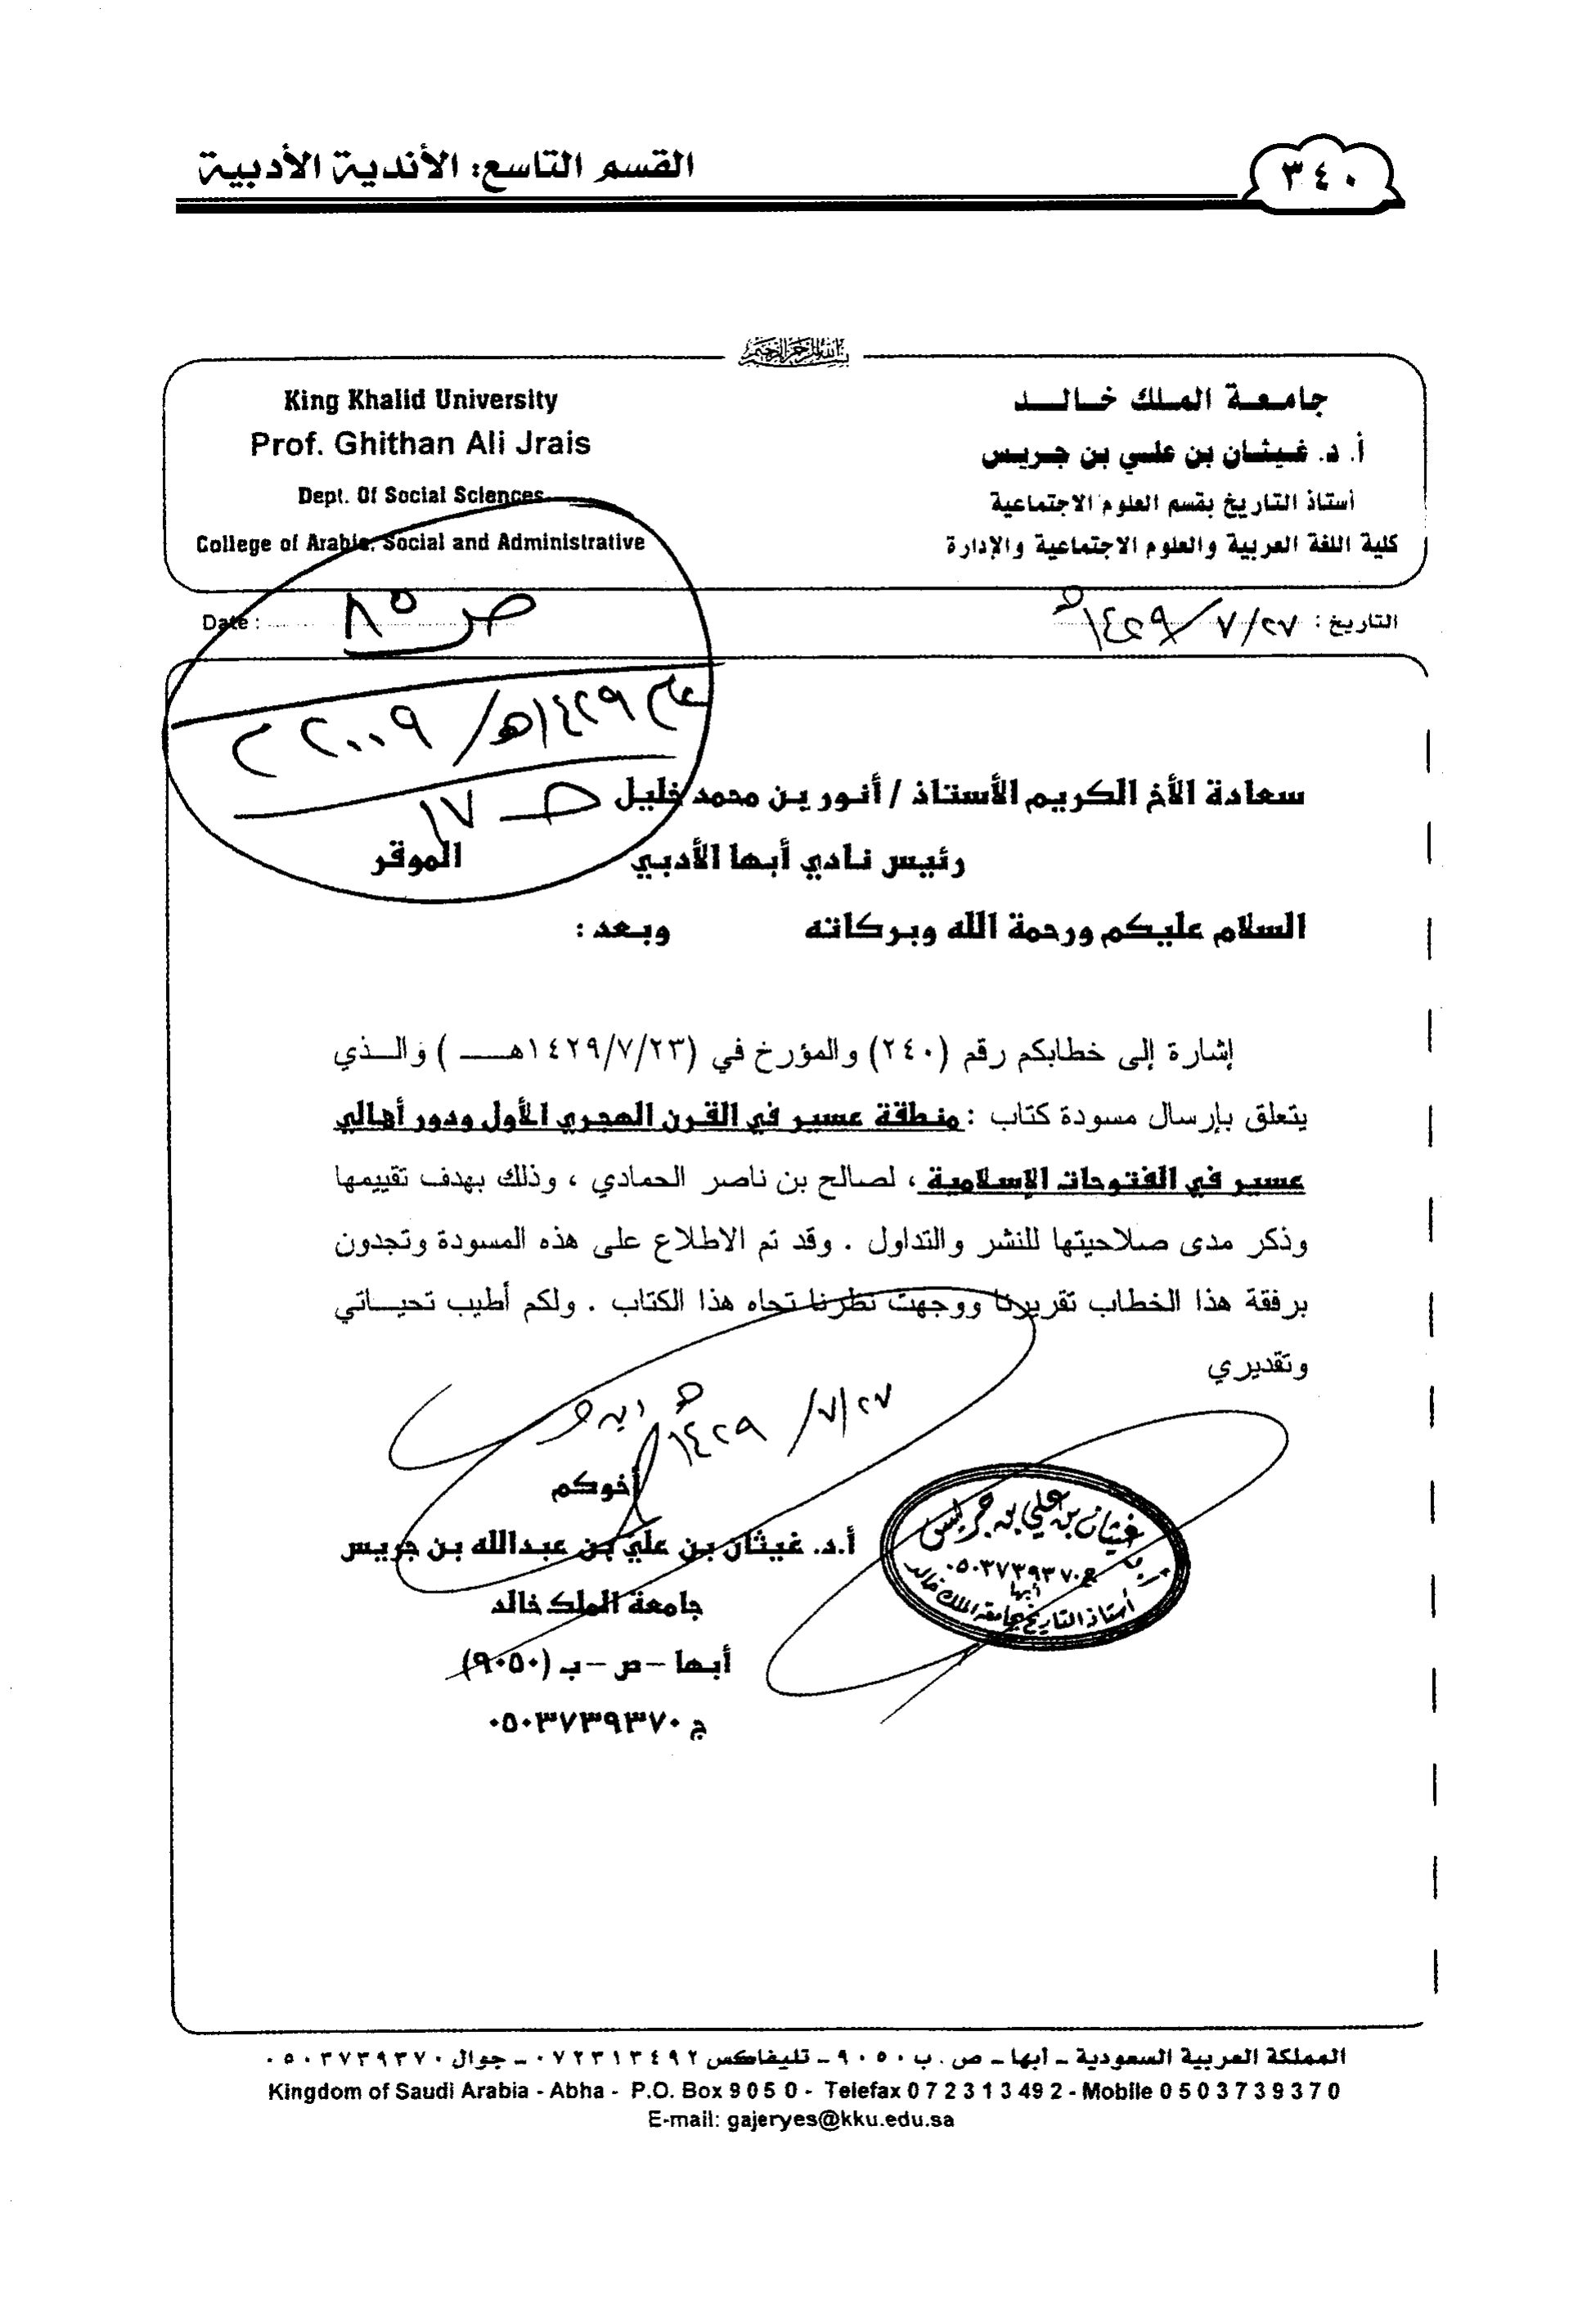 القسم التاسع: الأندية الأدبية
٣٤٠
بسم الله الرحمن الرحيم
جامعة الملك خالد
أ. د. غيثان بن علي بن جريس
أستاذ التاريخ بقسم العلوم الاجتماعية
كلية اللغة العربية والعلوم الاجتماعية والإدارة
King Khalid University
Prof. Ghithan Ali Jrais
Dept. Of Social Sciences
College of Arabic, Social and Administrative
التاريخ : ٢٧/٧/١٤٢٩هـ
Date :
ص ٨٥
عام ١٤٢٩هـ/ ٢٠٠٩م
ص ١٧
سعادة الأخ الكريم الأستاذ / أنور بن محمد خليل
رئيس نادي أبها الأدبي الموقر
السلام عليكم ورحمة الله وبركاته وبعد :
إشارة إلى خطابكم رقم (٢٤٠) والمؤرخ في (١٤٢٩/٧/٢٣هـــ ) والــذي
يتعلق بإرسال مسودة كتاب : منطقة عسير في القرن الهجري الأول ودور أهالي
عسير في الفتوحات الإسلامية ، لصالح بن ناصر الحمادي ، وذلك بهدف تقييمها
وذكر مدى صلاحيتها للنشر والتداول . وقد تم الاطلاع على هذه المسودة وتجدون
برفقة هذا الخطاب تقريرنا ووجهت نظرنا تجاه هذا الكتاب . ولكم أطيب تحيـــاتي
وتقديري
٢٧/٧/ ١٤٢٩هـ
أخوكم
أ.د. غيثان بن علي بن عبدالله بن جريس
جامعة الملك خالد
أبها – ص – ب (٩٠٥٠)
ج ٠٥٠٣٧٣٩٣٧٠
غيثان بن علي بن جريس
ج ٠٥٠٣٧٣٩٣٧٠
أبها
أستاذ التاريخ بجامعة الملك خالد
المملكة العربية السعودية ـ أبها ـ ص . ب ٩٠٥٠ ـ تليفاكس ٠٧٢٣١٣٤٩٢ ـ جوال ٠٥٠٣٧٣٩٣٧٠
Kingdom of Saudi Arabia - Abha - P.O. Box 9 0 5 0 - Telefax 0 7 2 3 1 3 4 9 2 - Mobile 0 5 0 3 7 3 9 3 7 0
E-mail: gajeryes@kku.edu.sa